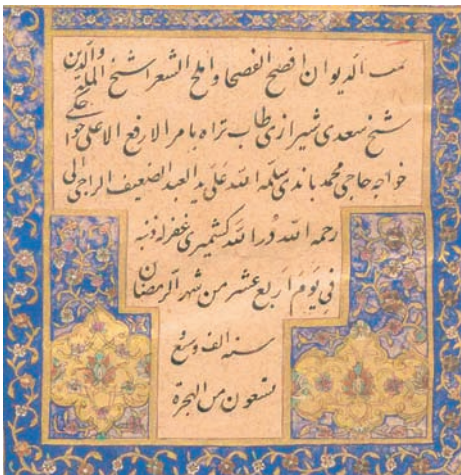 تمت الدیوان افصح الفصحا و املح الشعرا شیخ الملة والدین
شیخ سعدی شیرازی طاب تراه بامر الارفع الاعلی خواجکی
خواجه حاجی محمد باندی سلّمه الله علی ید العبد الضعیف الراجی الی
رحمه الله دُر الله کشمیری غفر له ذنبه
فی یَوم اربع عشر من شهر الرمضان
سنه الف و
تسعون من الهجرة